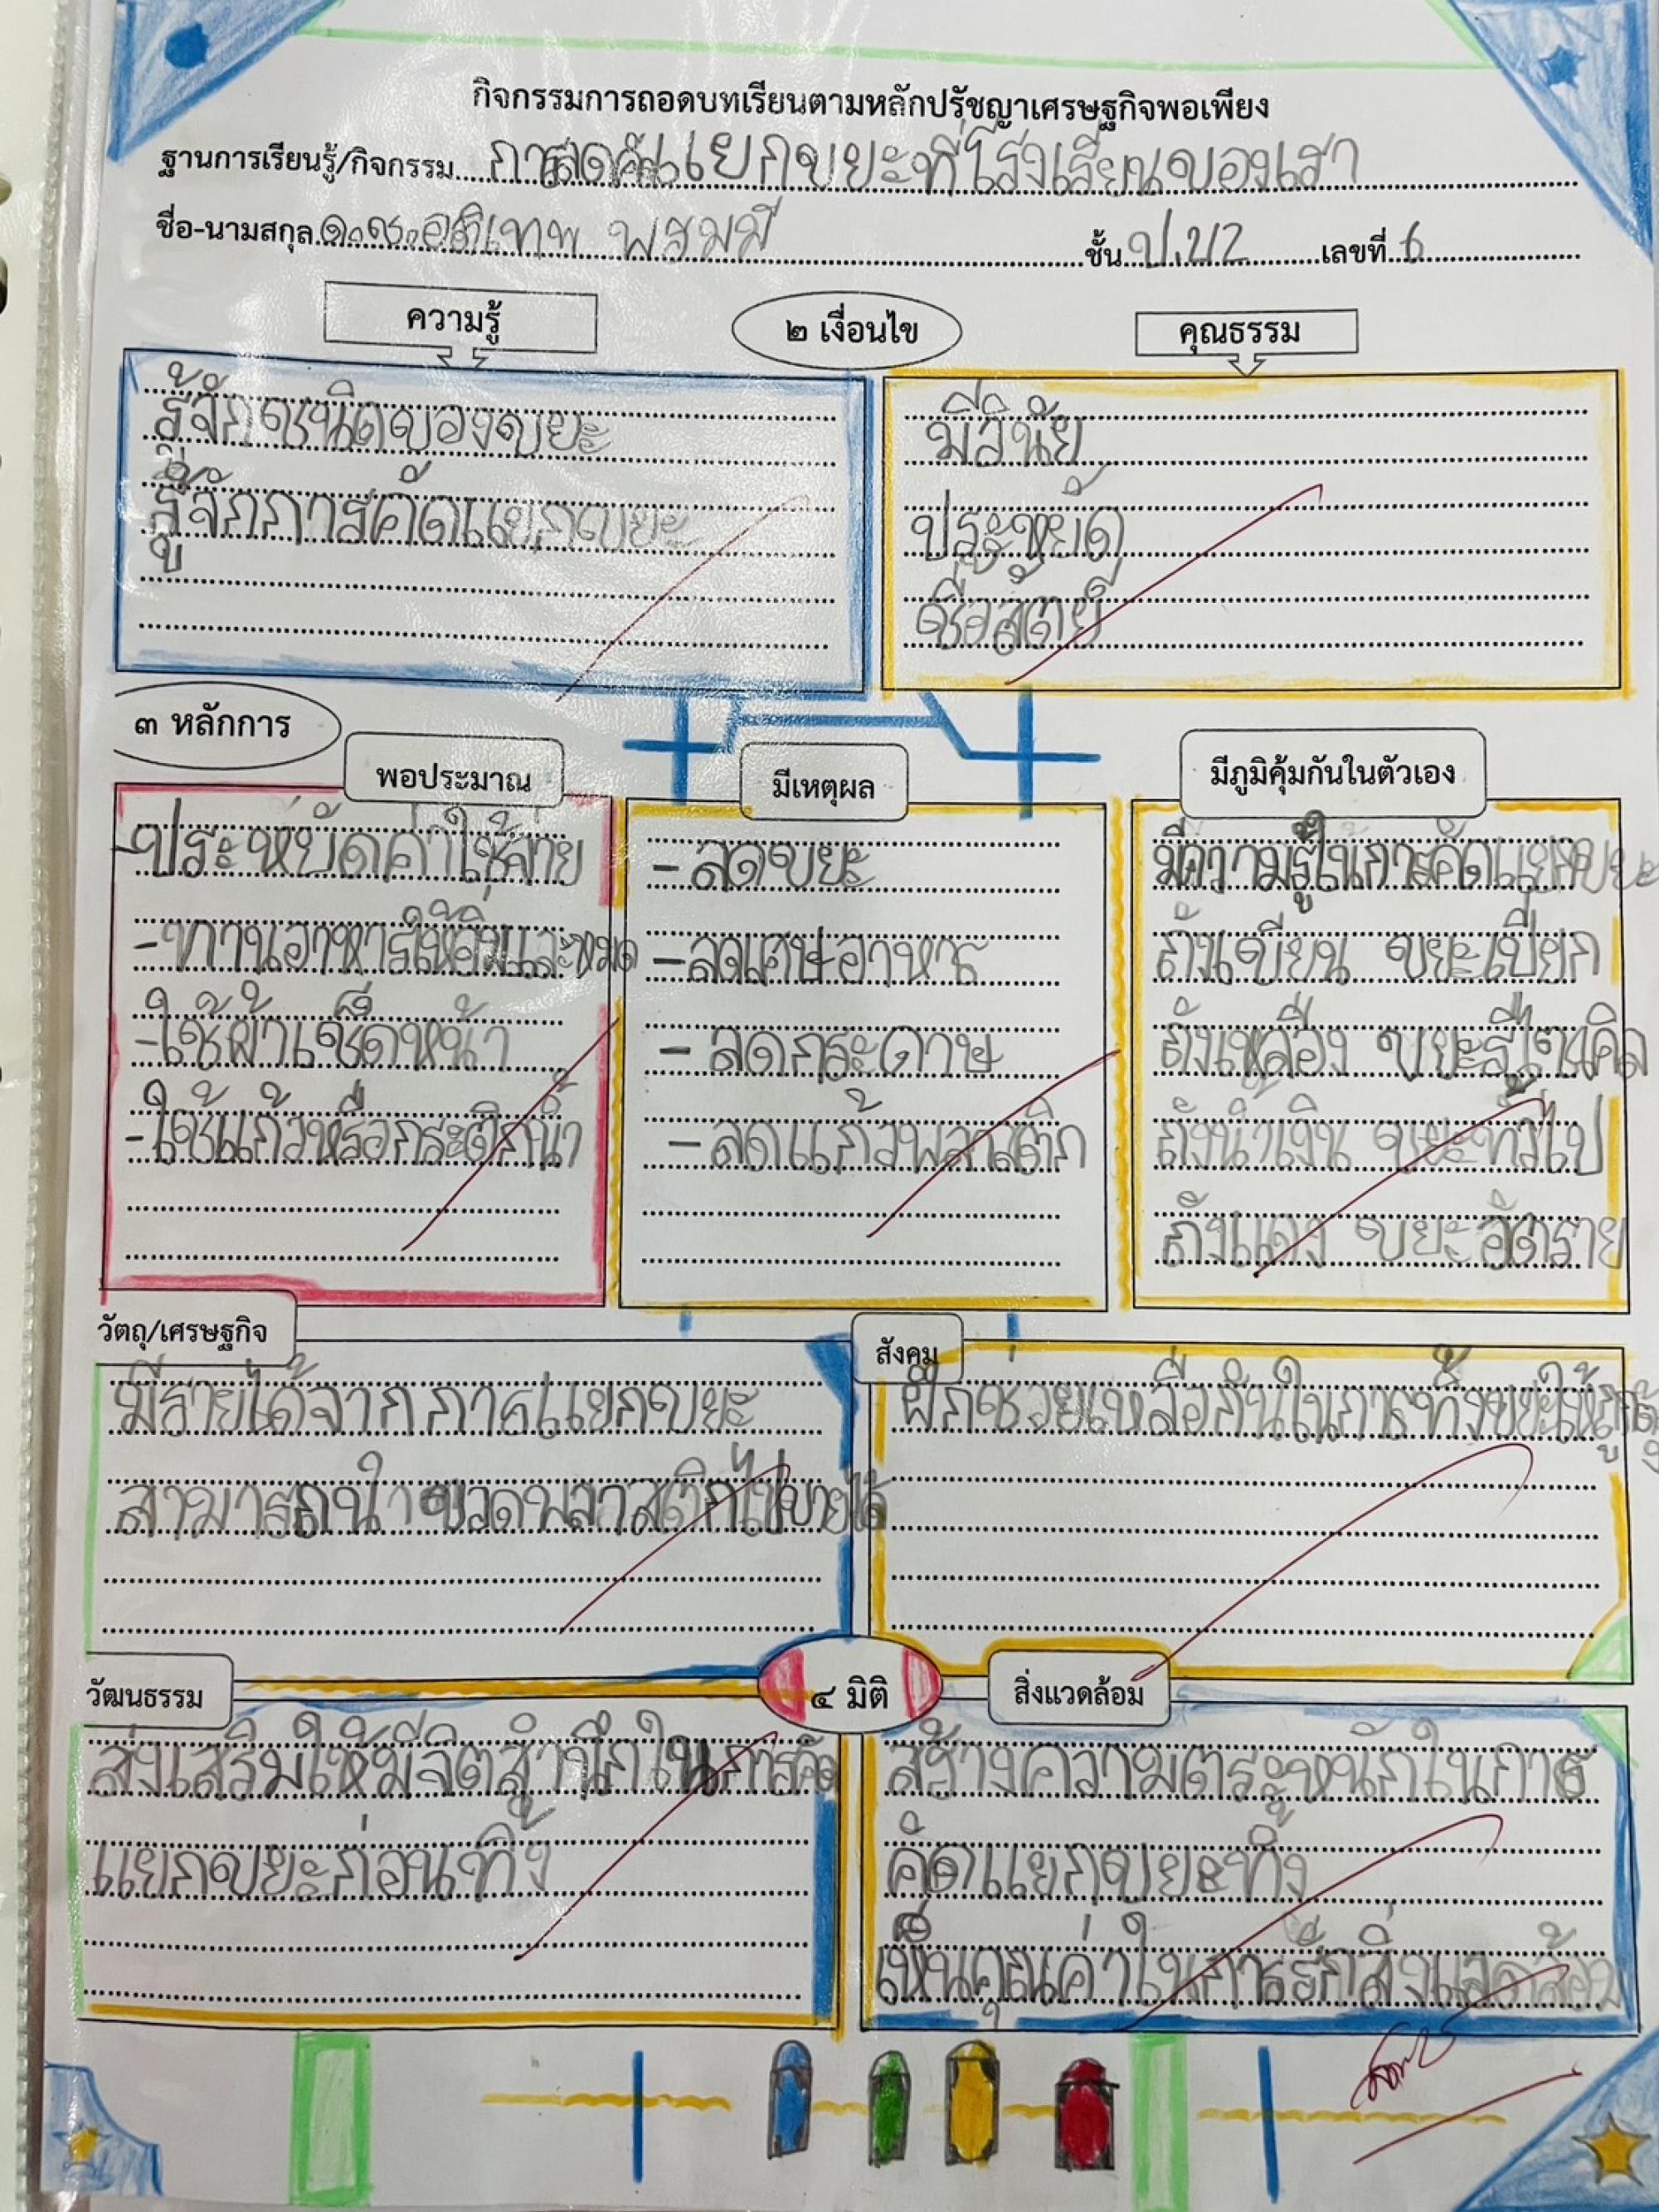 กิจกรรมการถอดบทเรียนตามหลักปรัชญาเศรษฐกิจพอเพียง
ฐานการเรียนรู้/กิจกรรม การคัดแยกขยะที่โรงเรียนของเรา
ชื่อ-นามสกุล ด.ช. พรมมี ชั้น ป.๒/2 เลขที่ 6
ความรู้ ๒ เงื่อนไข คุณธรรม
รู้จักชนิดของขยะ
รู้จักการคัดแยกขยะ
มีวินัย
ประหยัด
ซื่อสัตย์
๓ หลักการ
พอประมาณ มีเหตุผล มีภูมิคุ้มกันในตัวเอง
-ประหยัดค่าใช้จ่าย
-ทานอาหารให้อิ่มและหมด
-ใช้ผ้าเช็ดหน้า
-ใช้แก้วหรือกระติกน้ำ
-ลดขยะ
-ลดเศษอาหาร
-ลดกระดาษ
-ลดแก้วพลาสติก
มีความรู้ในการคัดแยกขยะ
ถังเขียน ขยะเปียก
ถังเหลือง ขยะรีไซเคิล
ถังน้ำเงิน ขยะทั่วไป
ถังแดง ขยะอัตราย
วัตถุ/เศรษฐกิจ
มีรายได้จากการแยกขยะ
สามารถนำขวดพลาสติกไปขายได้
สังคม
ฝึกช่วยเหลือกันในการทิ้งขยะให้ถูกต้อง
วัฒนธรรม ๔ มิติ สิ่งแวดล้อม
ส่งเสริมให้มีจิตสำนึกในการคัด
แยกขยะก่อนทิ้ง
สร้างความตระหนักในการ
คัดแยกขยะทิ้ง
เห็นคุณค่าในการรักสิ่งแวดล้อม